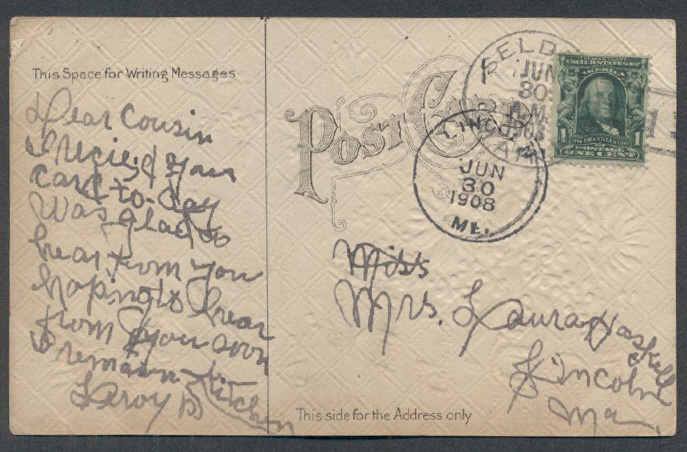 This Space for Writing Messages
Dear Cousin
I recieved your
card to-day
Was glad to
hear from you
hoping to hear
from you soon
I remain
Leroy B Kitchen
POST CARD
SELD
JUN
30
1908
LINCOLN
JUN
30
1908
ME.
UNITED STATES OF
AMERICA
FRANKLIN
1 POSTAGE 1
ONE CENT
Miss
Mrs. Laura Haskell
Lincoln
Me
This side for the Address only